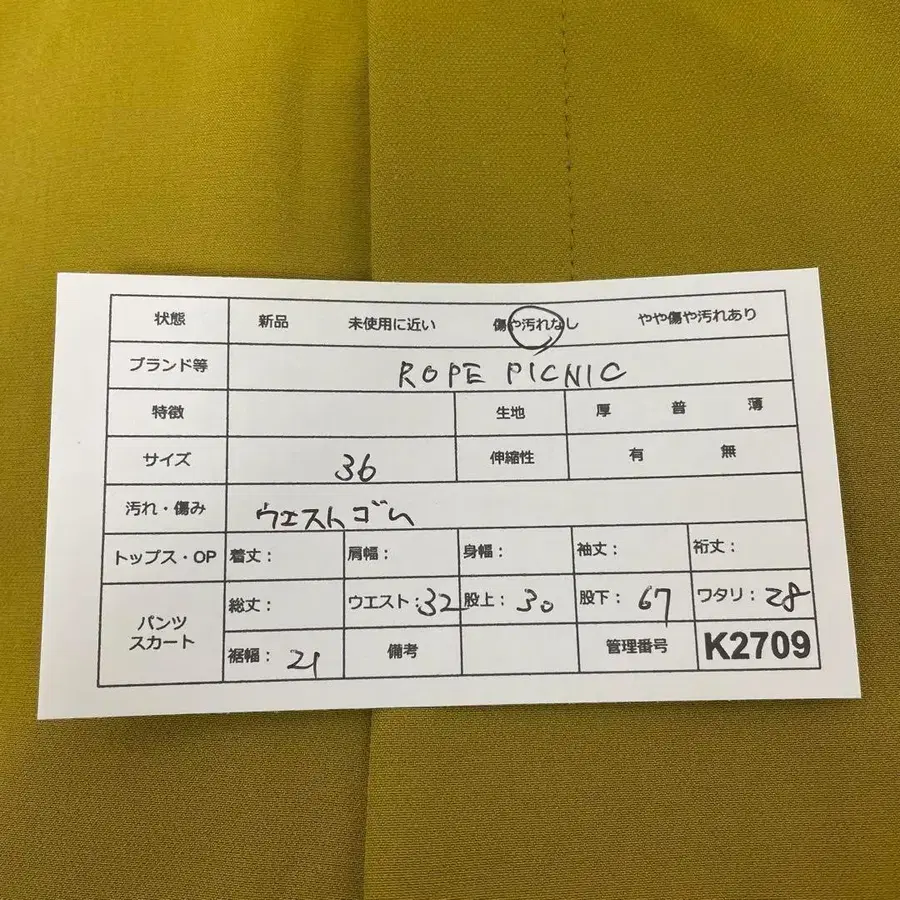 状態 新品 未使用に近い 傷や汚れなし やや傷や汚れあり
ブランド等 ROPE PICNIC
特徴 生地 厚 普 薄
サイズ 36 伸縮性 有 無
汚れ・傷み ウエストゴム
トップス・OP 着丈: 肩幅: 身幅: 袖丈: 裄丈:
パンツ スカート 総丈: ウエスト:32 股上:30 股下:67 ワタリ:28
裾幅:21 備考 管理番号 K2709